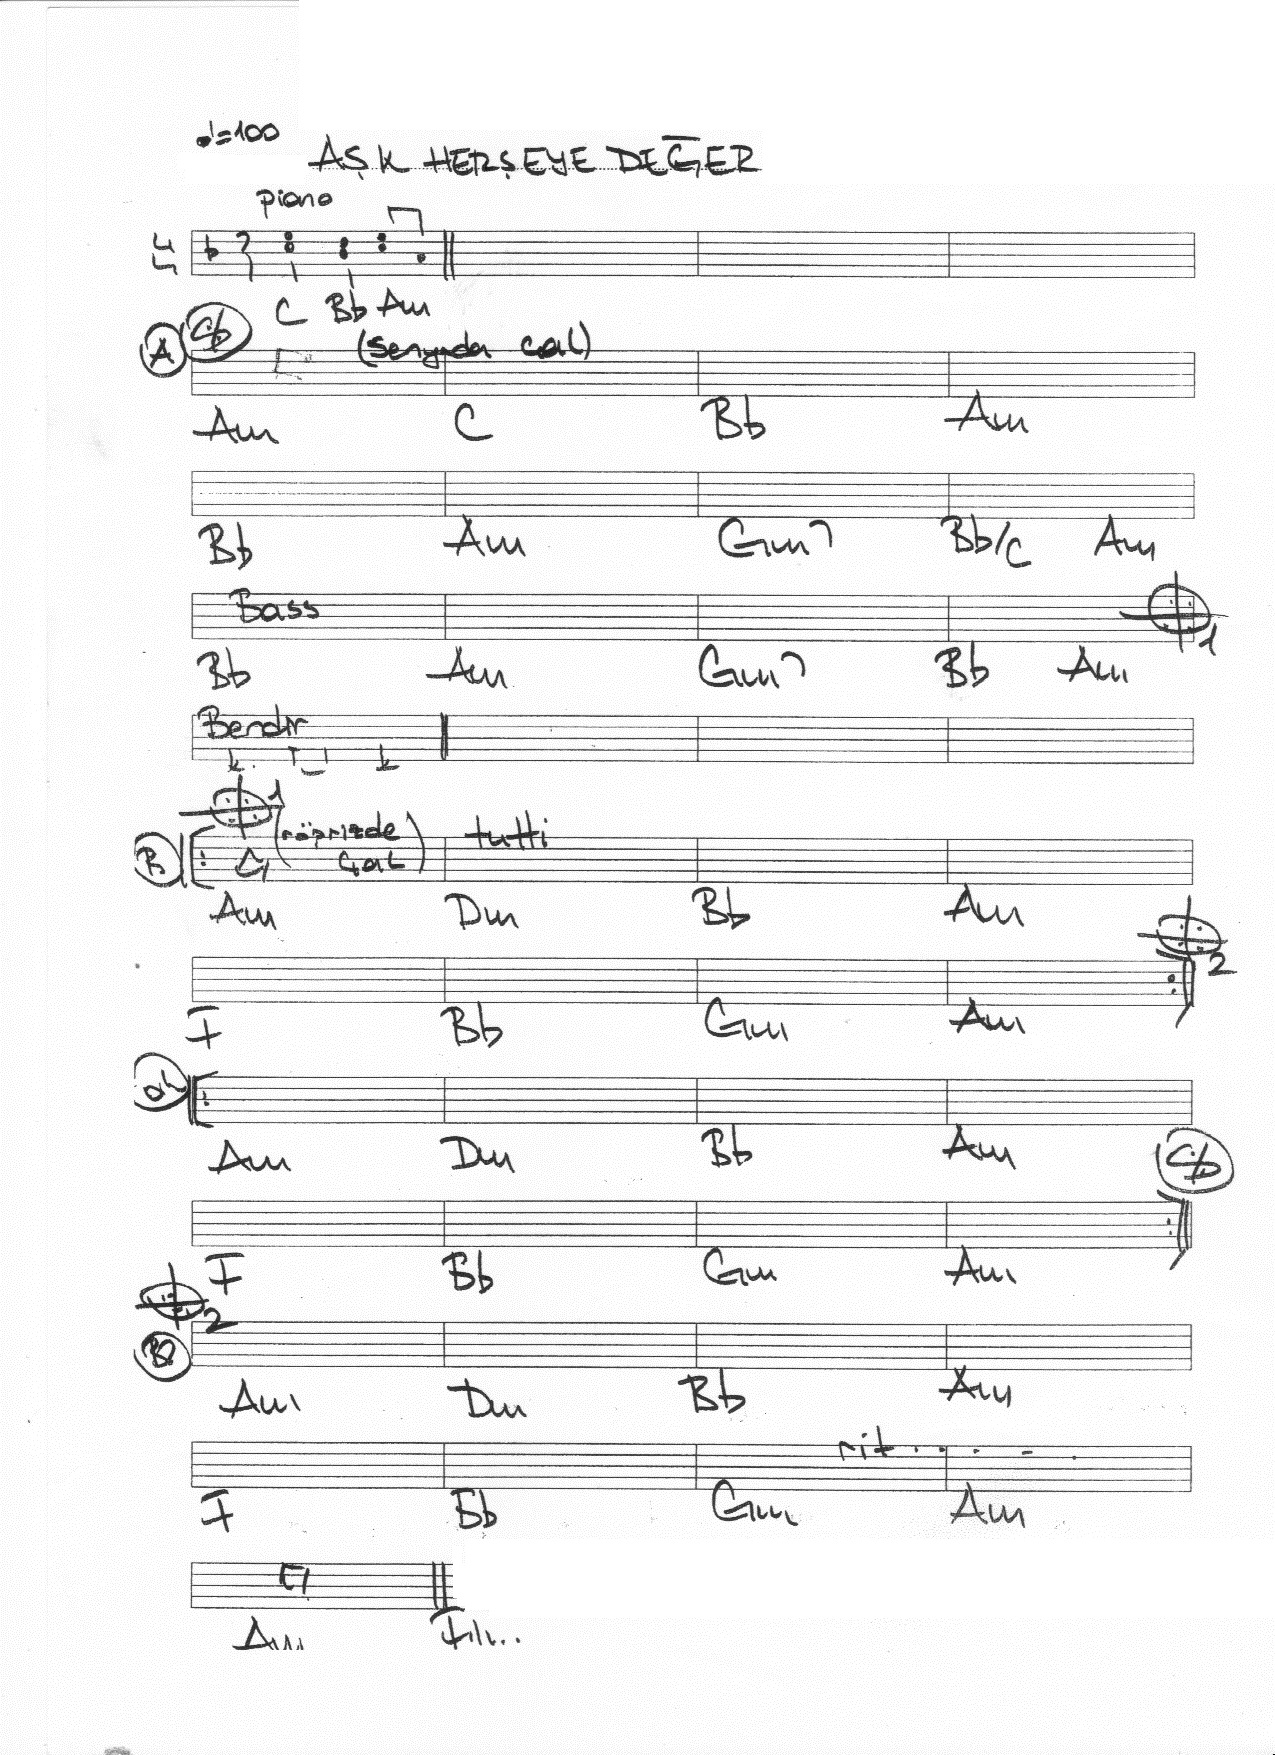 ♩=100
AŞK HERŞEYE DEĞER
piano
C Bb Am
A
(senyoda çal)
Am C Bb Am
Bb Am Gm7 Bb/C Am
Bass
1
Bb Am Gm7 Bb Am
Bendir
1
B (röprizde çal) tutti
Am Dm Bb Am
2
F Bb Gm Am
Am Dm Bb Am
F Bb Gm Am
2
B2
Am Dm Bb Am
rit . . . - .
F Bb Gm Am
Am Fin..